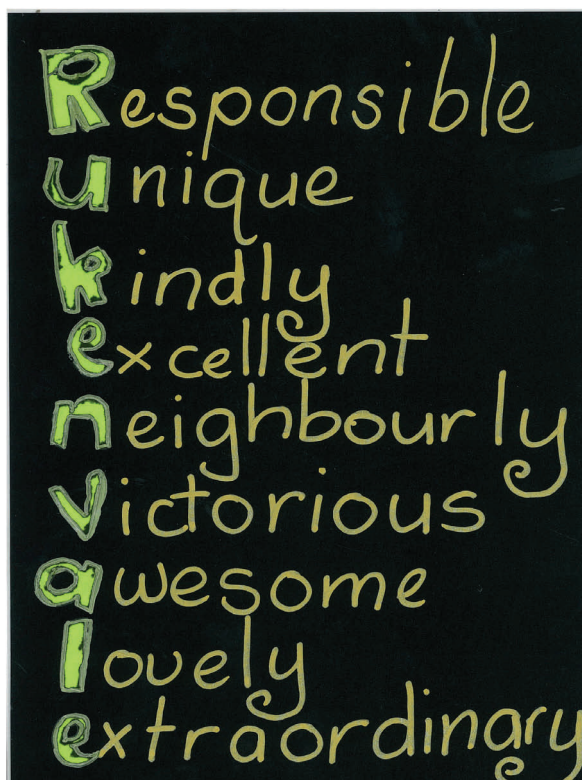 Responsible
unique
kindly
excellent
neighbourly
victorious
awesome
lovely
extraordinary